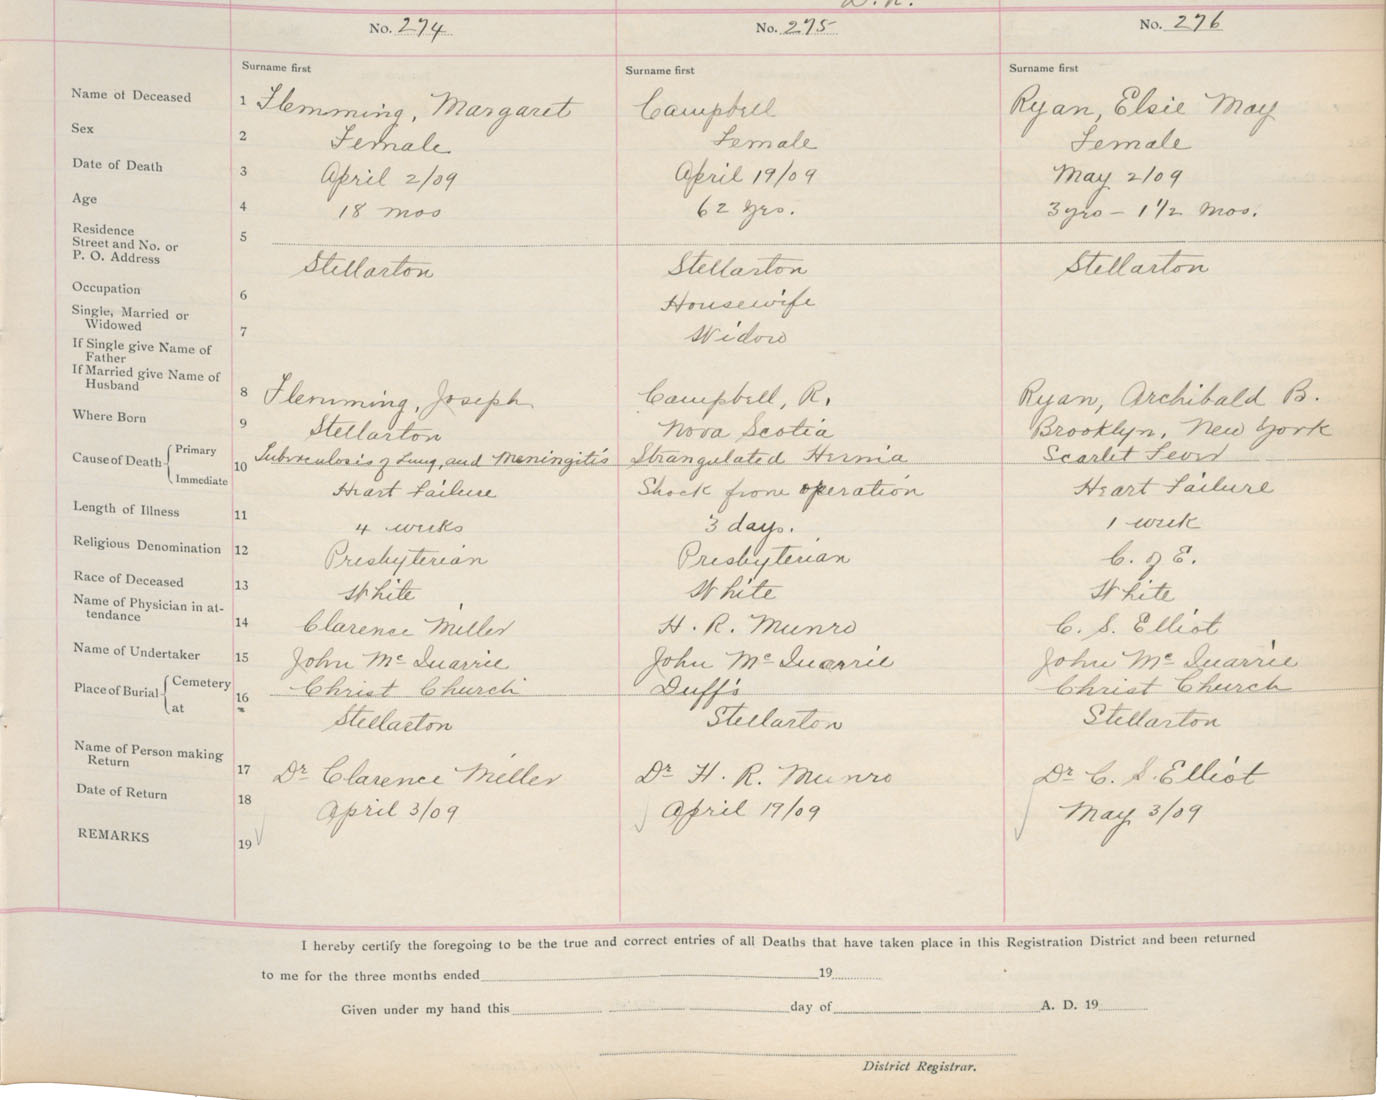 No. 274 No. 275 No. 276
Surname first Surname first Surname first
Name of Deceased 1 Flemming, Margaret Campbell Ryan, Elsie May
Sex 2 Female Female Female
Date of Death 3 April 2/09 April 19/09 May 2/09
Age 4 18 mos 62 yrs. 3 yrs - 1 1/2 mos.
Residence
Street and No. or 5
P. O. Address Stellarton Stellarton Stellarton
Occupation 6 Housewife
Single, Married or
Widowed 7 Widow
If Single give Name of
Father
If Married give Name of
Husband 8 Flemming, Joseph Campbell, R. Ryan, Archibald B.
Where Born 9 Stellarton Nova Scotia Brooklyn, New York
Cause of Death Primary 10 Tuberculosis of Lung, and Meningitis Strangulated Hernia Scarlet Fever
Immediate Heart Failure Shock from operation Heart Failure
Length of Illness 11 4 weeks 3 days. 1 week
Religious Denomination 12 Presbyterian Presbyterian C. of E.
Race of Deceased 13 White White White
Name of Physician in at-
tendance 14 Clarence Miller H. R. Munro C. S. Elliot
Name of Undertaker 15 John McQuarrie John McQuarrie John McQuarrie
Place of Burial Cemetery 16 Christ Church Duff's Christ Church
at Stellarton Stellarton Stellarton
Name of Person making
Return 17 Dr Clarence Miller Dr H. R. Munro Dr C. S. Elliot
Date of Return 18 April 3/09 April 19/09 May 3/09
REMARKS 19
I hereby certify the foregoing to be the true and correct entries of all Deaths that have taken place in this Registration District and been returned
to me for the three months ended 19
Given under my hand this day of A. D. 19
District Registrar.